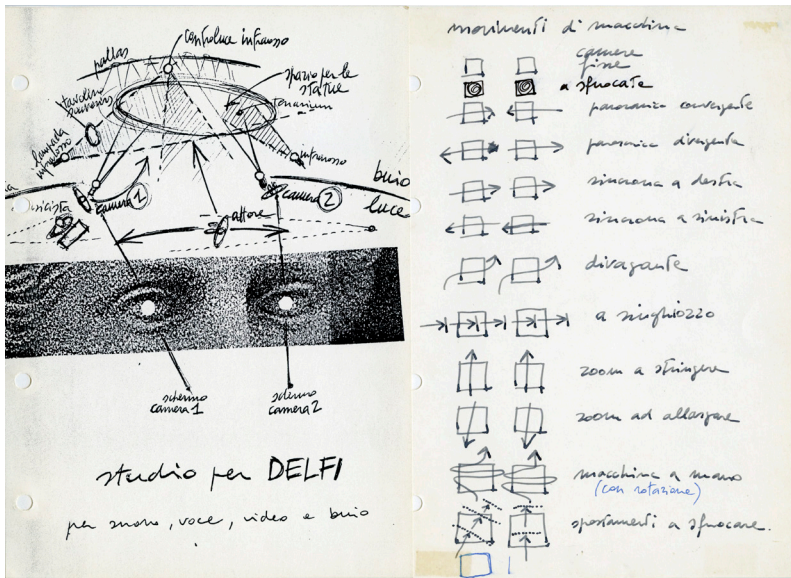 controluce infrarosso
pallas
spazio per le
statue
tavolino
tenarium
lampada
infrarosso
infrarosso
buio
luce
camera 1
camera 2
attore
schermo
camera 1
schermo
camera 2
studio per DELFI
per suono, voce, video e buio
movimenti di macchina
camere
fisse
a sfuocate
panoramica convergente
panoramica divergente
sincrona a destra
sincrona a sinistra
divagante
a singhiozzo
zoom a stringere
zoom ad allargare
macchina a mano
(con rotazione)
spostamenti a sfuocare.